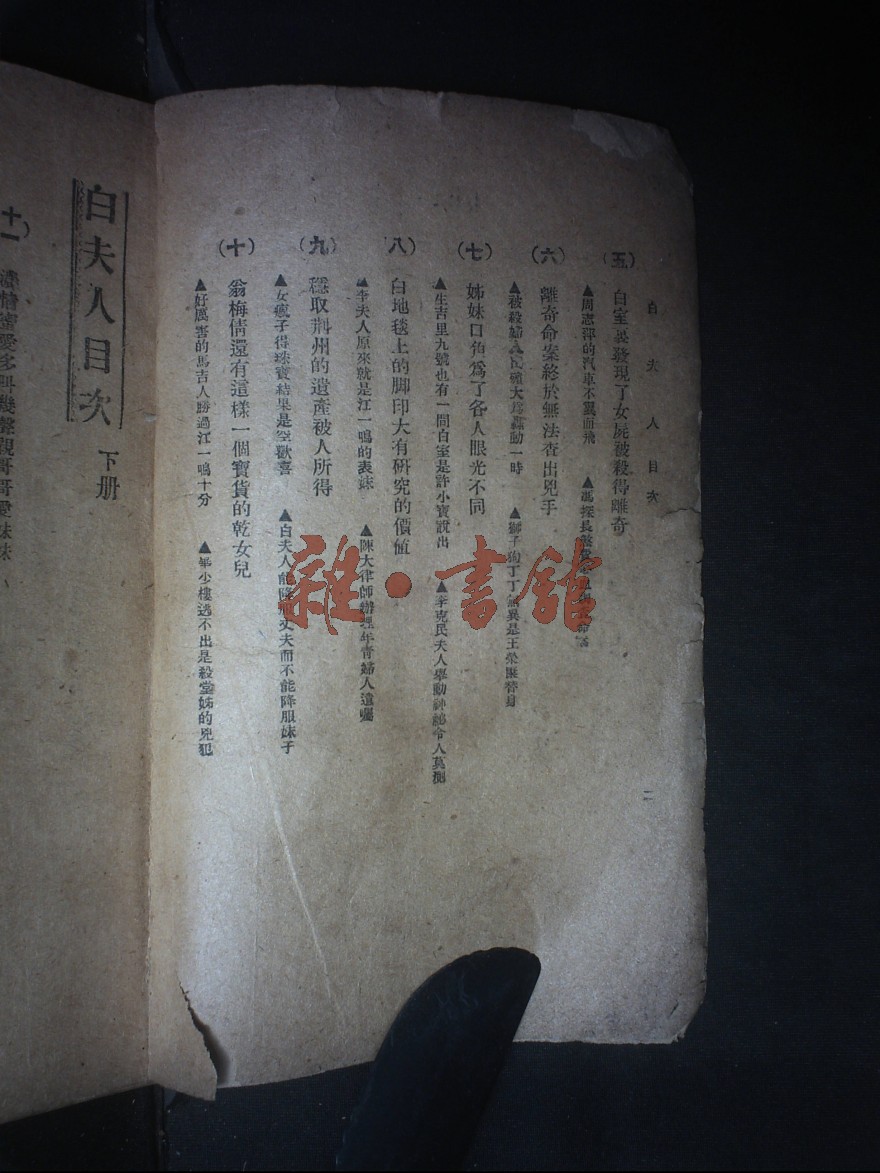 白夫人目次
二
(五) 白室裏發現了女屍被殺得離奇
▲周志萍的汽車不翼而飛 ▲馮探長
(六) 離奇命案終於無法查出兇手
▲被殺婦人 大爲轟動一時 ▲獅子狗丁丁無異是王榮 替身
(七) 姊妹口角爲了各人眼光不同
▲生吉里九號也有一間白室是許小寶說出 ▲李克民夫人舉動神秘令人莫測
(八) 白地毯上的脚印大有研究的價值
▲李夫人原來就是江一鳴的表妹 ▲陳大律師辦理年青婦人遺囑
(九) 穩取荆州的遺產被人所得
▲女瘋子得珠寶結果是空歡喜 ▲白夫人能降服丈夫而不能降服妹子
(十) 翁梅倩還有這樣一個寶貨的乾女兒
▲好厲害的馬吉人勝過江一鳴十分 ▲ 少樓逃不出是殺堂姊的兇犯
白夫人目次 下册
(十一)
雜·書館